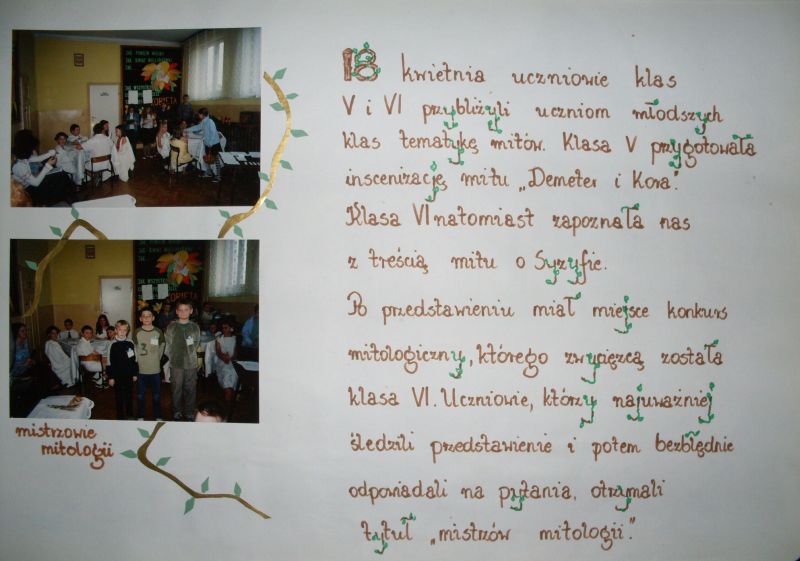 18 kwietnia uczniowie klas
V i VI przybliżyli uczniom młodszych
klas tematykę mitów. Klasa V przygotowała
inscenizację mitu „Demeter i Kora".
Klasa VI natomiast zapoznała nas
z treścią mitu o Syzyfie.
Po przedstawieniu miał miejsce konkurs
mitologiczny, którego zwycięzcą została
klasa VI. Uczniowie, którzy najuważniej
śledzili przedstawienie i potem bezbłędnie
odpowiadali na pytania, otrzymali
tytuł „mistrzów mitologii".
mistrzowie
mitologii